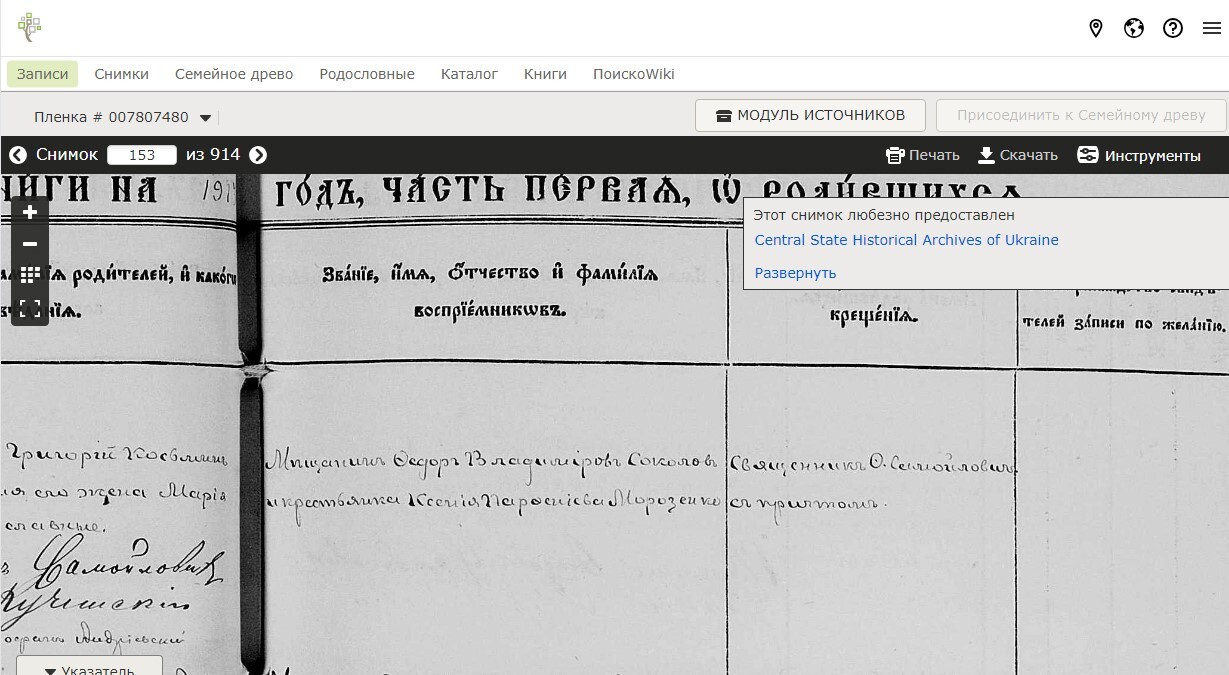 Записи Снимки Семейное древо Родословные Каталог Книги ПоискоWiki
Пленка # 007807480
МОДУЛЬ ИСТОЧНИКОВ
Присоединить к Семейному древу
Снимок 153 из 914
Печать Скачать Инструменты
НА 191 ГО́ДЪ, ЧА́СТЬ ПЕ́РВАѦ, Ѽ РОДИ́ВШИХСѦ
Этот снимок любезно предоставлен
Central State Historical Archives of Ukraine
Развернуть
роди́телей, и҆́ како́гѡ
Зва́нїе, и҆́мѧ, ѻ҆́тчество и҆ фами́лїѧ
воспрїе́мникѡвъ.
креще́нїѧ.
телей за́писи по жела́нїю.
Григорій
его жена Марія
Мѣщанинъ Ѳедоръ Владиміровъ Соколовъ
и крестьянка Ксенія Морозенко
Священникъ Ѳ. Самойловичъ
съ причтомъ.
Самойловичъ
Указатель